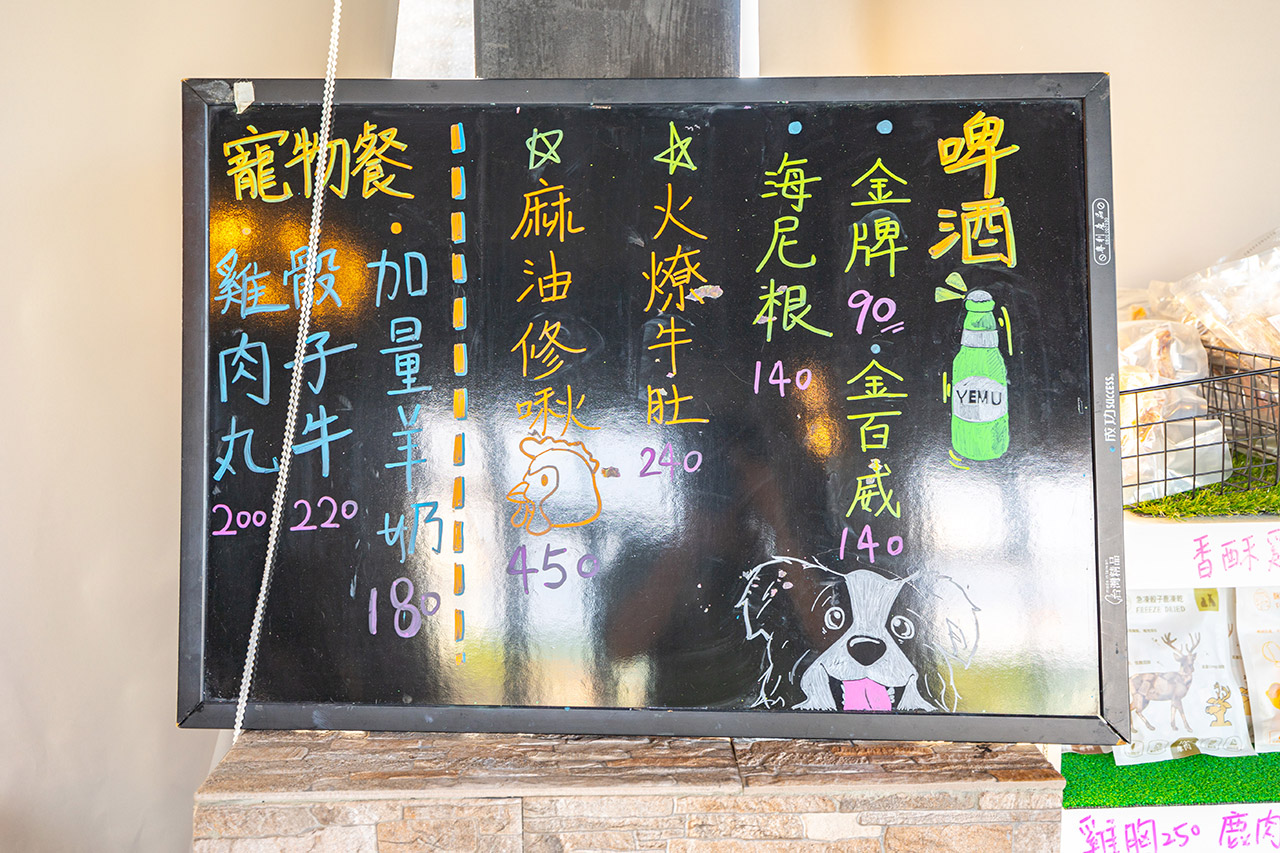 啤酒
YEMU
金牌
90
金百威
140
海尼根
140
火燎牛肚
240
麻油修啾
450
寵物餐
加量羊奶
180
骰子牛
220
雞肉丸
200
成功SUCCESS
台灣精品
香酥雞
FREEZE DRIED
雞胸250 鹿肉